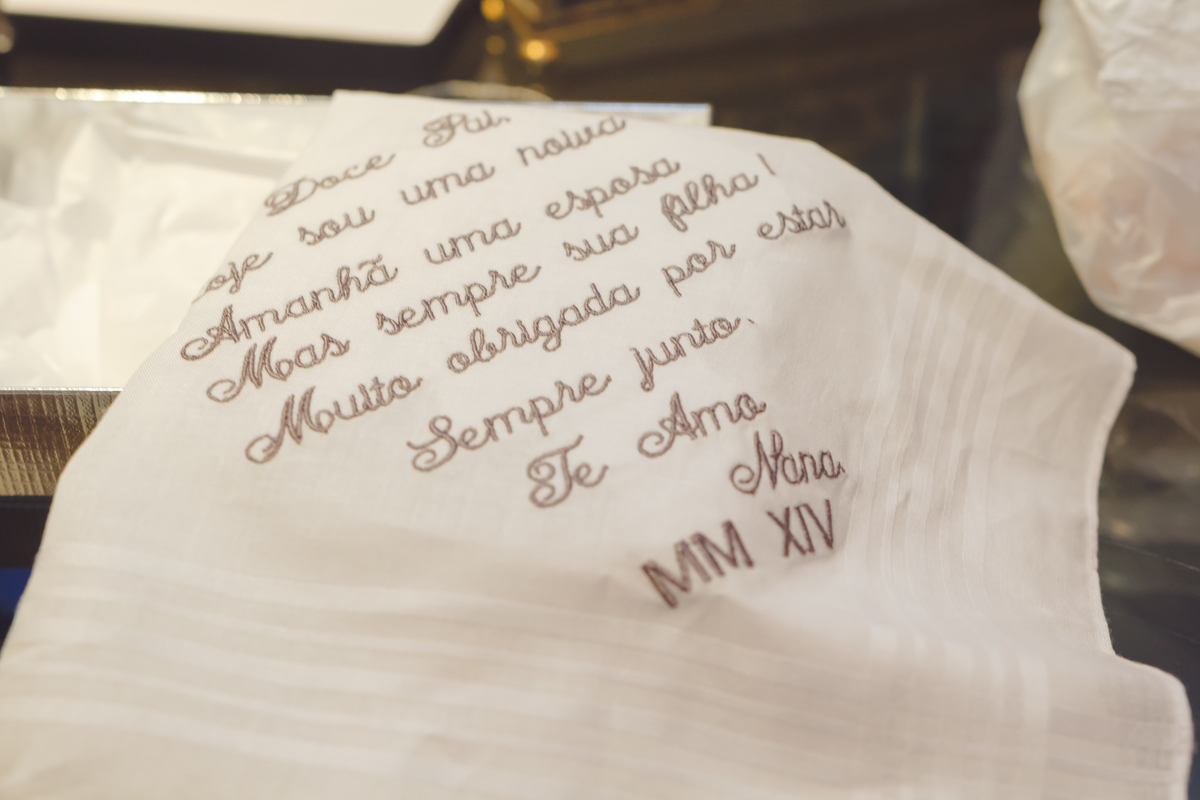 Doce Pai,
oje sou uma noiva
Amanhã uma esposa
Mas sempre sua filha!
Muito obrigada por estar
Sempre junto.
Te Amo
Nana.
MM XIV